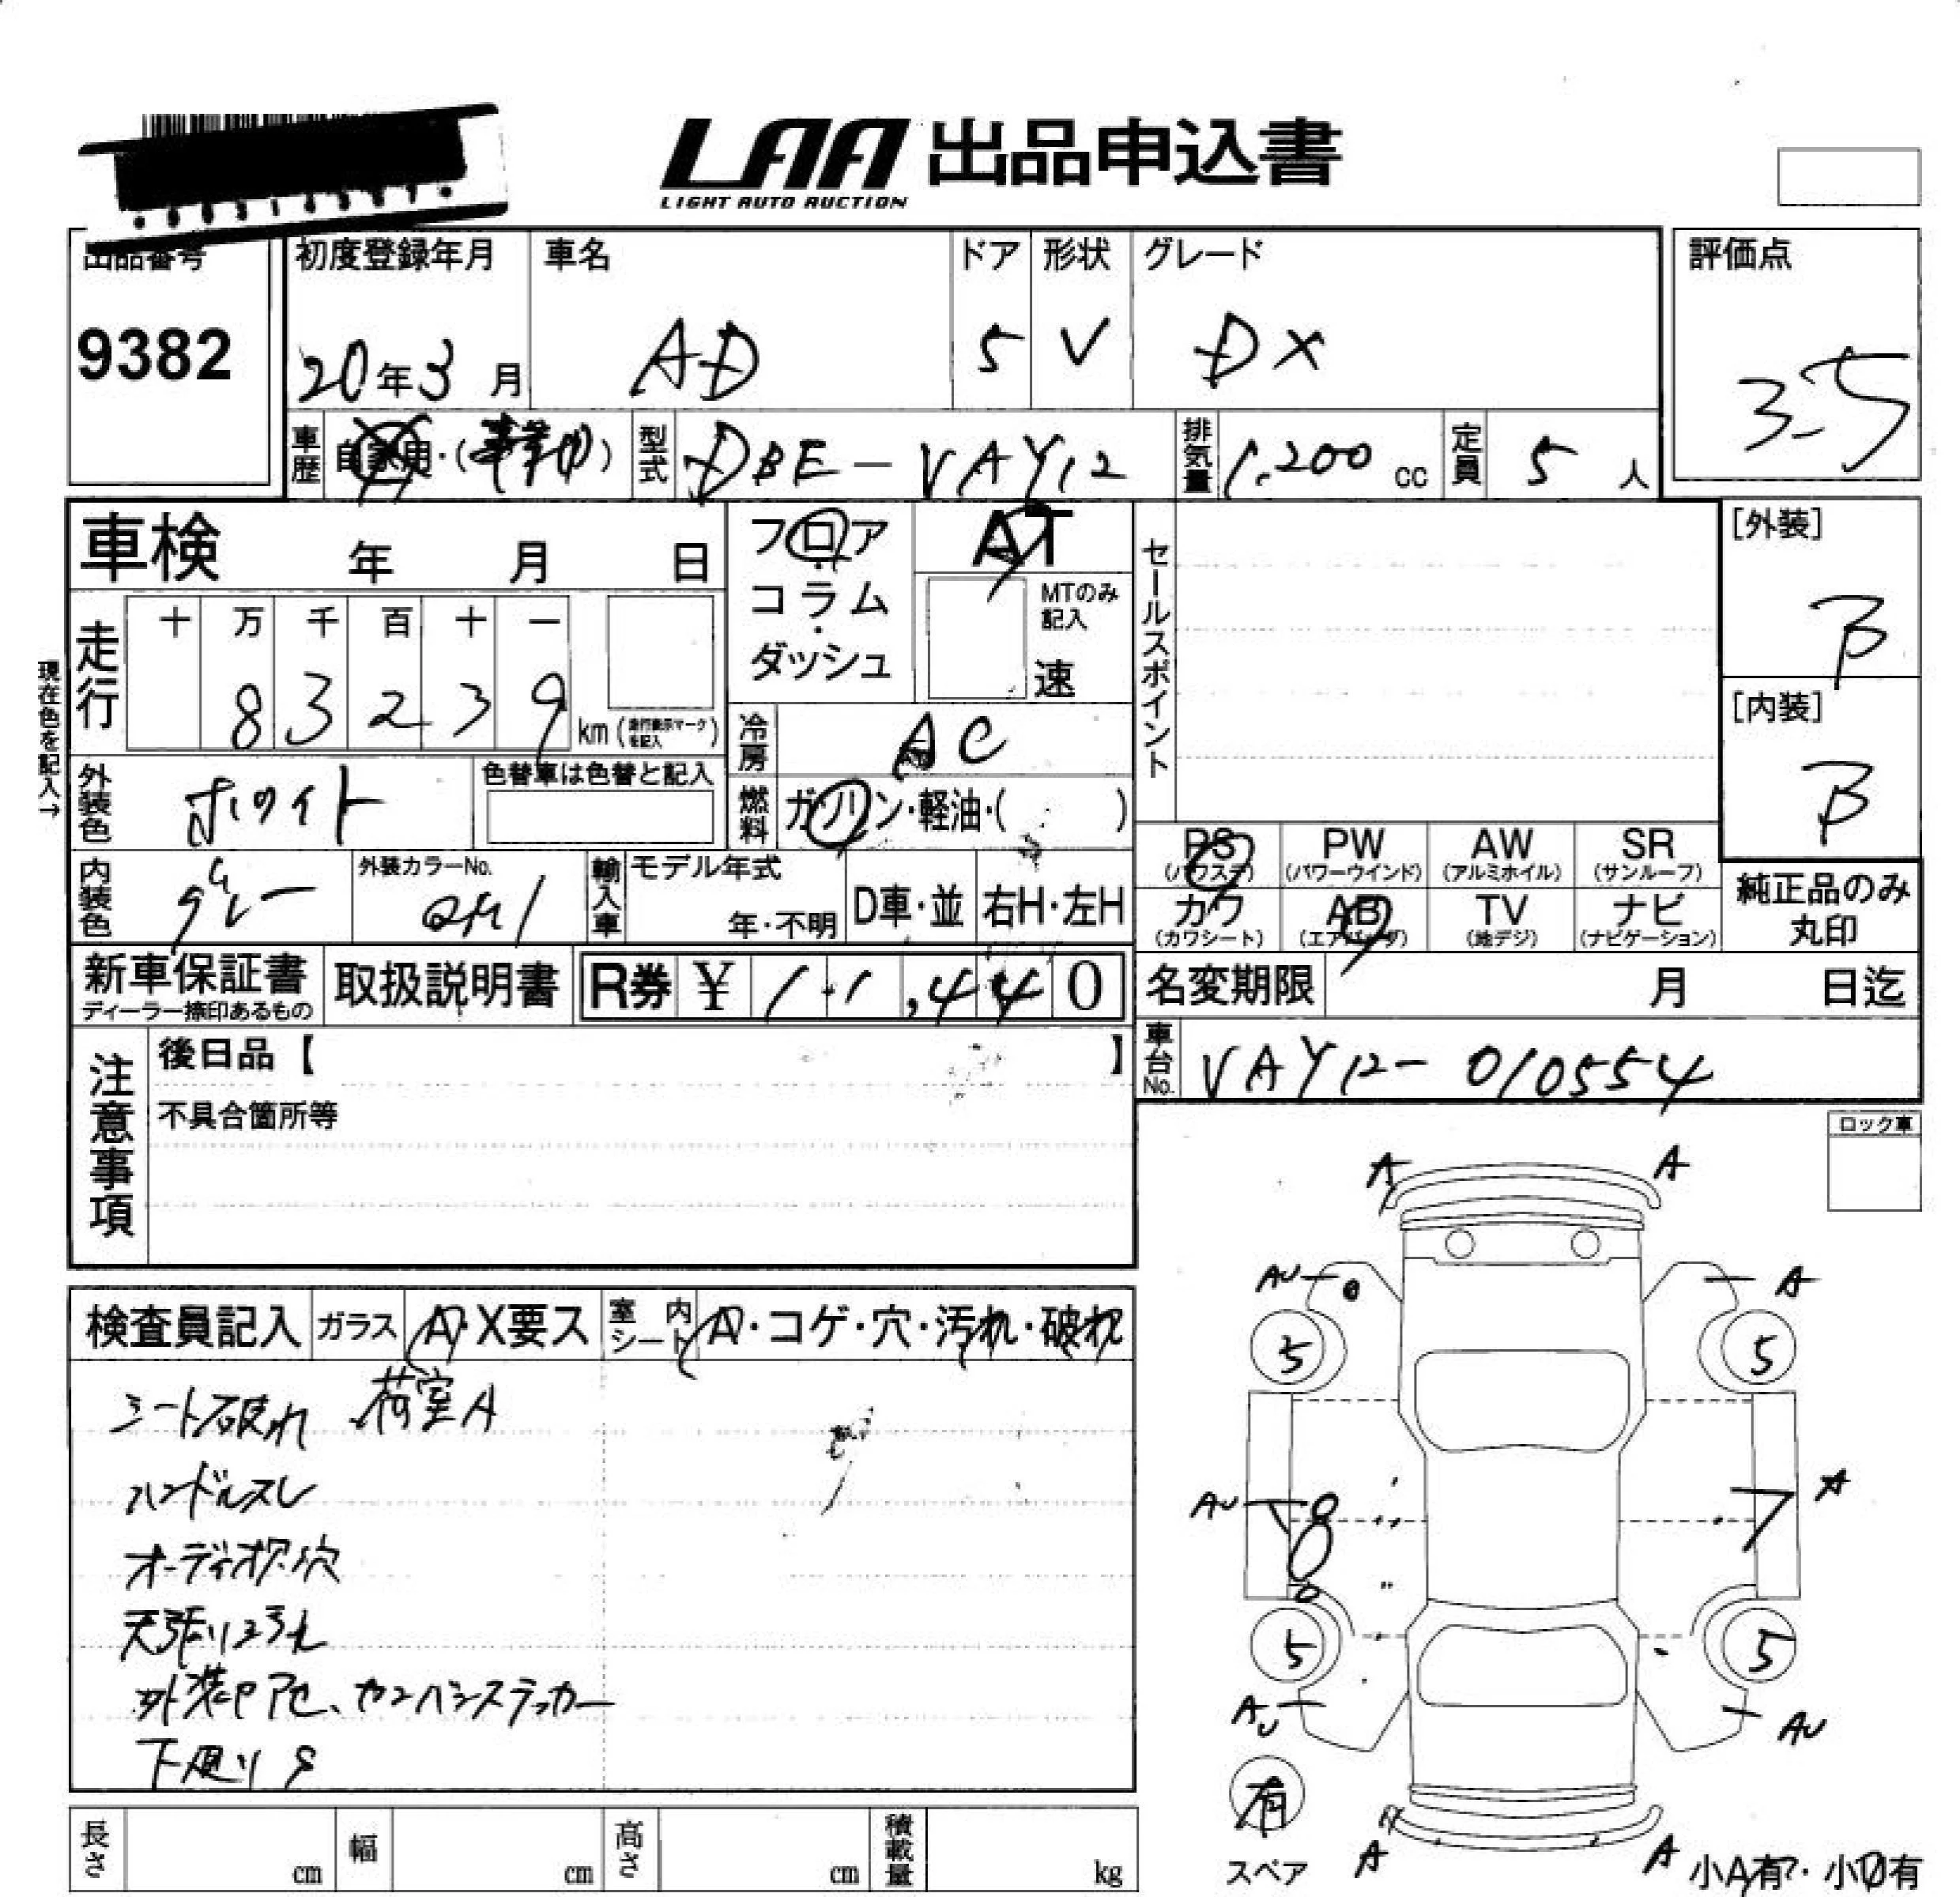 LAA 出品申込書
LIGHT AUTO AUCTION
出品番号 初度登録年月 車名 ドア 形状 グレード 評価点
9382 20年3月 AD 5 V DX 3.5
車歴 自家用・( ) 型式 DBE-VAY12 排気量 1.200 cc 定員 5 人
車検 年 月 日 フロア AT セールスポイント [外装]
コラム MTのみ記入 B
ダッシュ 速
走行 十 万 千 百 十 一
8 3 2 3 9 km (走行表示マークを記入) [内装]
現在色を記入→
冷房 AC B
外装色 ホワイト 色替車は色替と記入 燃料 ガソリン・軽油・( )
PS PW AW SR
(パワステ) (パワーウインド) (アルミホイル) (サンルーフ)
内装色 グレー 外装カラーNo. QM1 輸入車 モデル年式 年・不明 D車・並 右H・左H
カワ AB TV ナビ 純正品のみ
(カワシート) (エアバッグ) (地デジ) (ナビゲーション) 丸印
新車保証書 取扱説明書 R券 ¥ 11,440 名変期限 月 日迄
ディーラー捺印あるもの
注意事項 後日品【 】 車台No. VAY12-010554
不具合箇所等
ロック車
A A
AU A
5 5
検査員記入 ガラス A・X要ス 室内シート A・コゲ・穴・汚れ・破れ
シート破れ 荷室A
ハンドルスレ
AU 8 7 A
オーディオ欠.穴
天張り汚れ
5 5
外装アセ、カンバンステッカー
AU AU
下廻りS
有
スペア
A A
小A有・小U有
長さ cm 幅 cm 高さ cm 積載量 kg